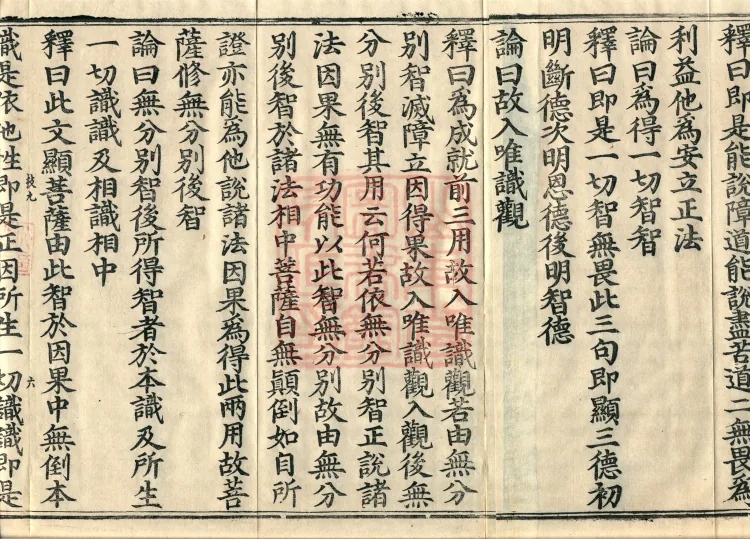 釋曰即是能說障道能說盡苦道二無畏為
利益他為安立正法
論曰為得一切智智
釋曰即是一切智無畏此三句即顯三德初
明斷德次明恩德後明智德
論曰故入唯識觀
釋曰為成就前三用故入唯識觀若由無分
別智滅障立因得果故入唯識觀入觀後無
分別後智其用云何若依無分別智正說諸
法因果無有功能以此智無分別故由無分
別後智於諸法相中菩薩自無顛倒如自所
證亦能為他說諸法因果為得此兩用故菩
薩修無分別後智
論曰無分別智後所得智者於本識及所生
一切識識及相識相中
釋曰此文顯菩薩由此智於因果中無倒本
識是依他性即是正因所生一切識識即是
六